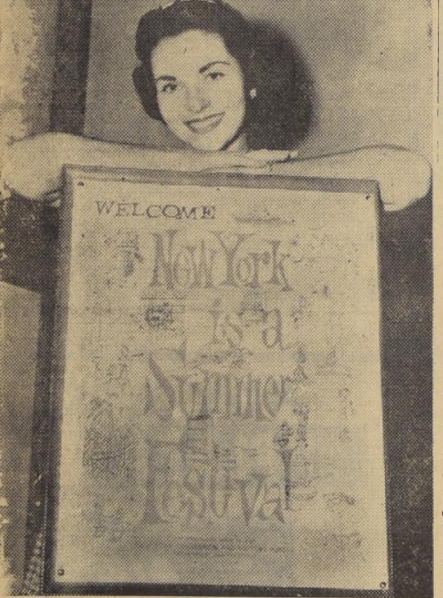 WELCOME
New York
is a
Summer
Festival